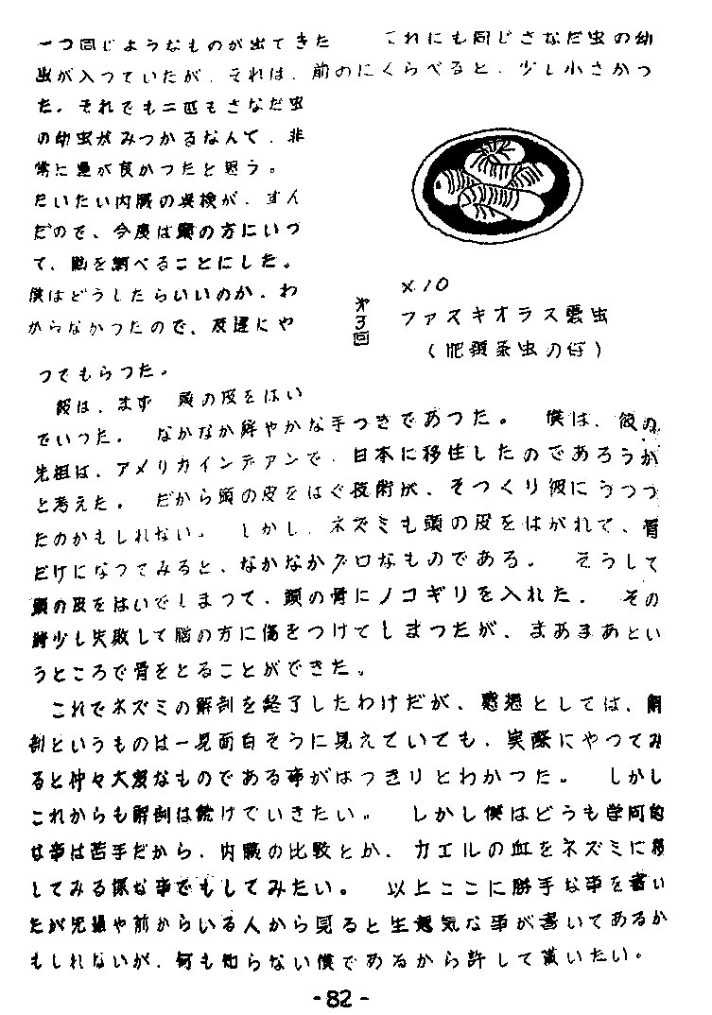 一つ同じようなものが出てきた　　これにも同じさなだ虫の幼
虫が入つていたが、それは、前のにくらべると、少し小さかつ
た。それでも二匹もさなだ虫
の幼虫がみつかるなんて、非
常に運が良かつたと思う。
だいたい内臓の点検が、すん
だので、今度は頭の方にいつ
て、脳を調べることにした。
僕はどうしたらいいのか、わ
からなかつたので、友達にや
つてもらつた。
×10
第3図
ファスキオラス嚢虫
（肥頸条虫の仔）
彼は、まず　頭の皮をはい
でいつた。　なかなか鮮やかな手つきであつた。　僕は、彼の
先祖は、アメリカインデアンで、日本に移住したのであろうか
と考えた。　だから頭の皮をはぐ技術が、そつくり彼にうつつ
たのかもしれない。　しかし、ネズミも頭の皮をはがれて、骨
だけになつてみると、なかなかグロなものである。　そうして
頭の皮をはいでしまつて、頭の骨にノコギリを入れた。　その
時少し失敗して脳の方に傷をつけてしまつたが、まあまあとい
うところで骨をとることができた。
これでネズミの解剖を終了したわけだが、感想としては、解
剖というものは一見面白そうに見えていても、実際にやつてみ
ると仲々大変なものである事がはつきりとわかつた。　しかし
これからも解剖は続けていきたい。　しかし僕はどうも学問的
な事は苦手だから、内臓の比較とか、カエルの血をネズミに移
してみる様な事でもしてみたい。　以上ここに勝手な事を書い
たが先輩や前からいる人から見ると生意気な事が書いてあるか
もしれないが、何も知らない僕であるから許して貰いたい。
-82-